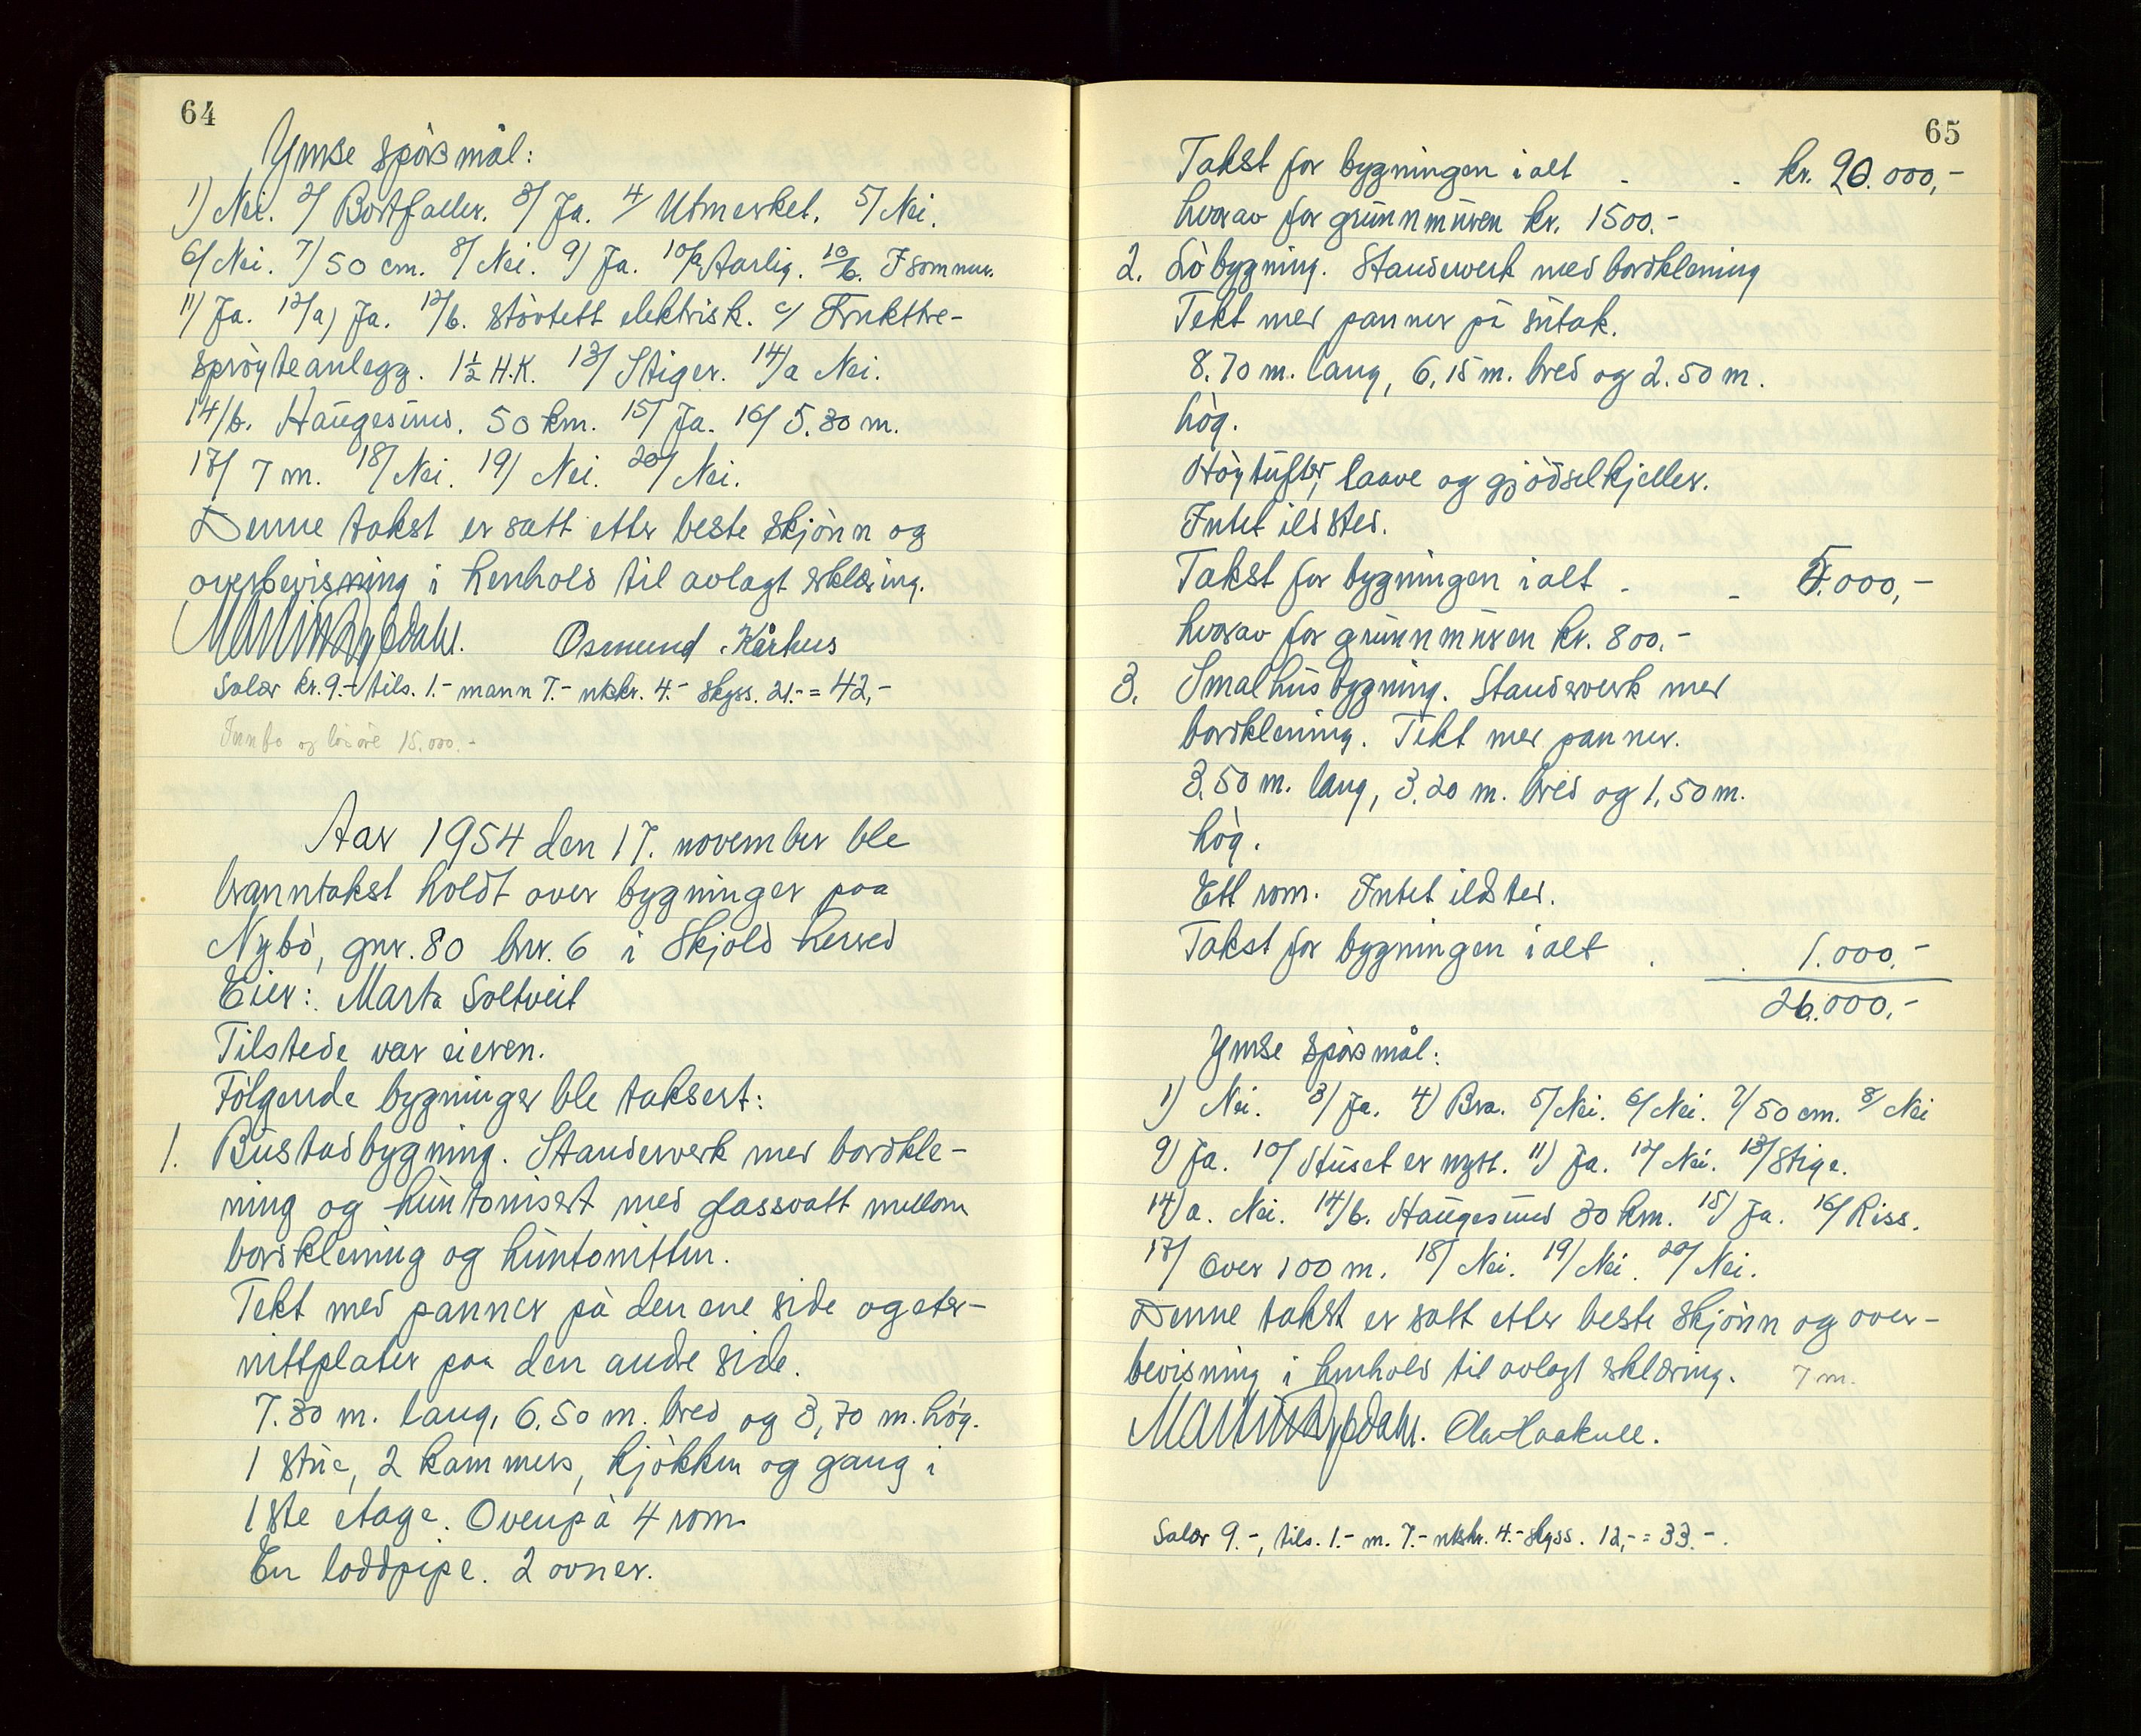 64
Ymse spörsmål:
1) Nei. 2/ Bortfaller. 3/ Ja. 4/ Utmerket. 5/ Nei.
6/ Nei. 7/ 50 cm. 8/ Nei. 9) Ja. 10/a Aarlig. 10/b. I sommer.
11/ Ja. 12/a) Ja. 12/b. Stövtett elektrisk. c/ Frukttre-
spröyteanlegg. 1½ H.K. 13/ Stiger. 14/a Nei.
14/b. Haugesund. 50 km. 15/ Ja. 16/ 5.30 m.
17/ 7 m. 18/ Nei. 19) Nei. 20/ Nei.
Denne takst er satt etter beste skjönn og
overbevisning i henhold til avlagt erklæring.
Osmund Kårhus
Salær kr. 9.- tils. 1.- mann 7.- utskr. 4.- skyss. 21.- = 42,-
Innbo og lösöre 15.000.-
Aar 1954 den 17. november ble
branntakst holdt over bygninger paa
Nybö, gnr. 80 bnr. 6 i Skjold herred
Eier: Marta Soltveit
Tilstede var eieren.
Fölgende bygninger ble taksert:
1. Bustadbygning. Standerverk med bordkle-
ning og huntonisert med glassvatt mellom
bordklening og huntonitten.
Tekt med panner på den ene side og eter-
nittplater paa den andre side.
7.30 m. lang, 6.50 m. bred og 3,70 m. hög.
1 stue, 2 kammers, kjökken og gang i
1ste etage. Ovenpå 4 rom
En loddpipe. 2 ovner.
65
Takst for bygningen ialt . . kr. 20.000,-
hvorav for grunnmuren kr. 1500.-
2. Löbygning. Standerverk med bordklening
Tekt med panner på sutak.
8.70 m. lang, 6,15 m. bred og 2.50 m.
hög.
Höytufter, laave og gjödselkjeller.
Intet ildsted.
Takst for bygningen ialt . . 5.000,-
hvorav for grunnmuren kr. 800.-
3. Smalhusbygning. Standerverk med
bordklening. Tekt med panner.
3.50 m. lang, 3.20 m. bred og 1.50 m.
hög.
Ett rom. Intet ildsted.
Takst for bygningen ialt . . 1.000.-
26.000.-
Ymse spörsmål:
1) Nei. 3/ Ja. 4) Bra. 5/ Nei. 6/ Nei. 7/ 50 cm. 8/ Nei
9) Ja. 10/ Huset er nytt. 11) Ja. 12/ Nei. 13/ Stige.
14/a. Nei. 14/b. Haugesund 30 km. 15/ Ja. 16/ Riss.
17/ Over 100 m. 18/ Nei. 19/ Nei. 20/ Nei.
Denne takst er satt etter beste skjönn og over-
bevisning i henhold til avlagt erklæring. 7 m.
Salær 9.-, tils. 1.- m. 7.- utskr. 4.- skyss. 12,- = 33.-.